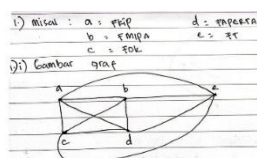 1.) misal : a = FKIP d = FAPERTA
b = FMIPA e = FT
c = FOK
1)i) Gambar graf
a b e
c d